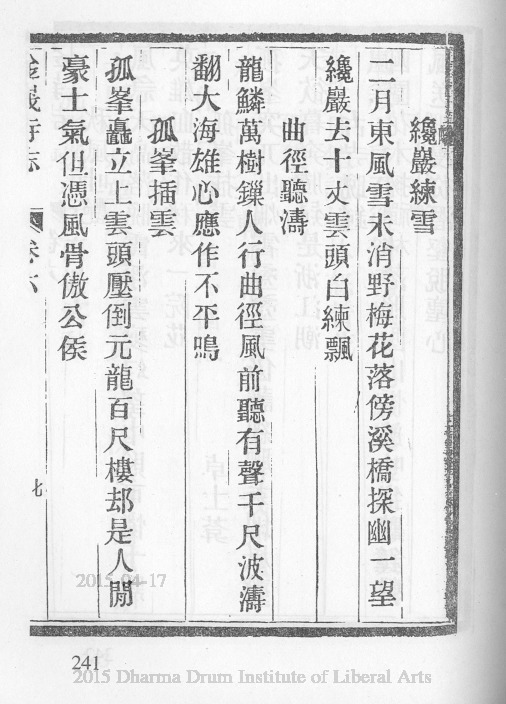 纔巖練雪
二月東風雪未消野梅花落傍溪橋探幽一望
纔巖去十丈雲頭白練飄
曲徑聽濤
龍鱗萬樹鏁人行曲徑風前聽有聲千尺波濤
翻大海雄心應作不平鳴
孤峯插雲
孤峯矗立上雲頭壓倒元龍百尺樓却是人間
豪士氣但憑風骨傲公侯
寺志 卷六 七
2015-04-17
241
2015 Dharma Drum Institute of Liberal Arts